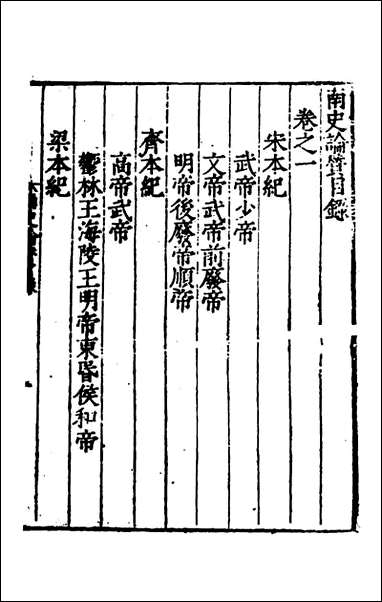 南史論贊目錄
卷之一
宋本紀
武帝少帝
文帝武帝前廢帝
明帝後廢帝順帝
齊本紀
高帝武帝
鬱林王海陵王明帝東昏侯和帝
梁本紀